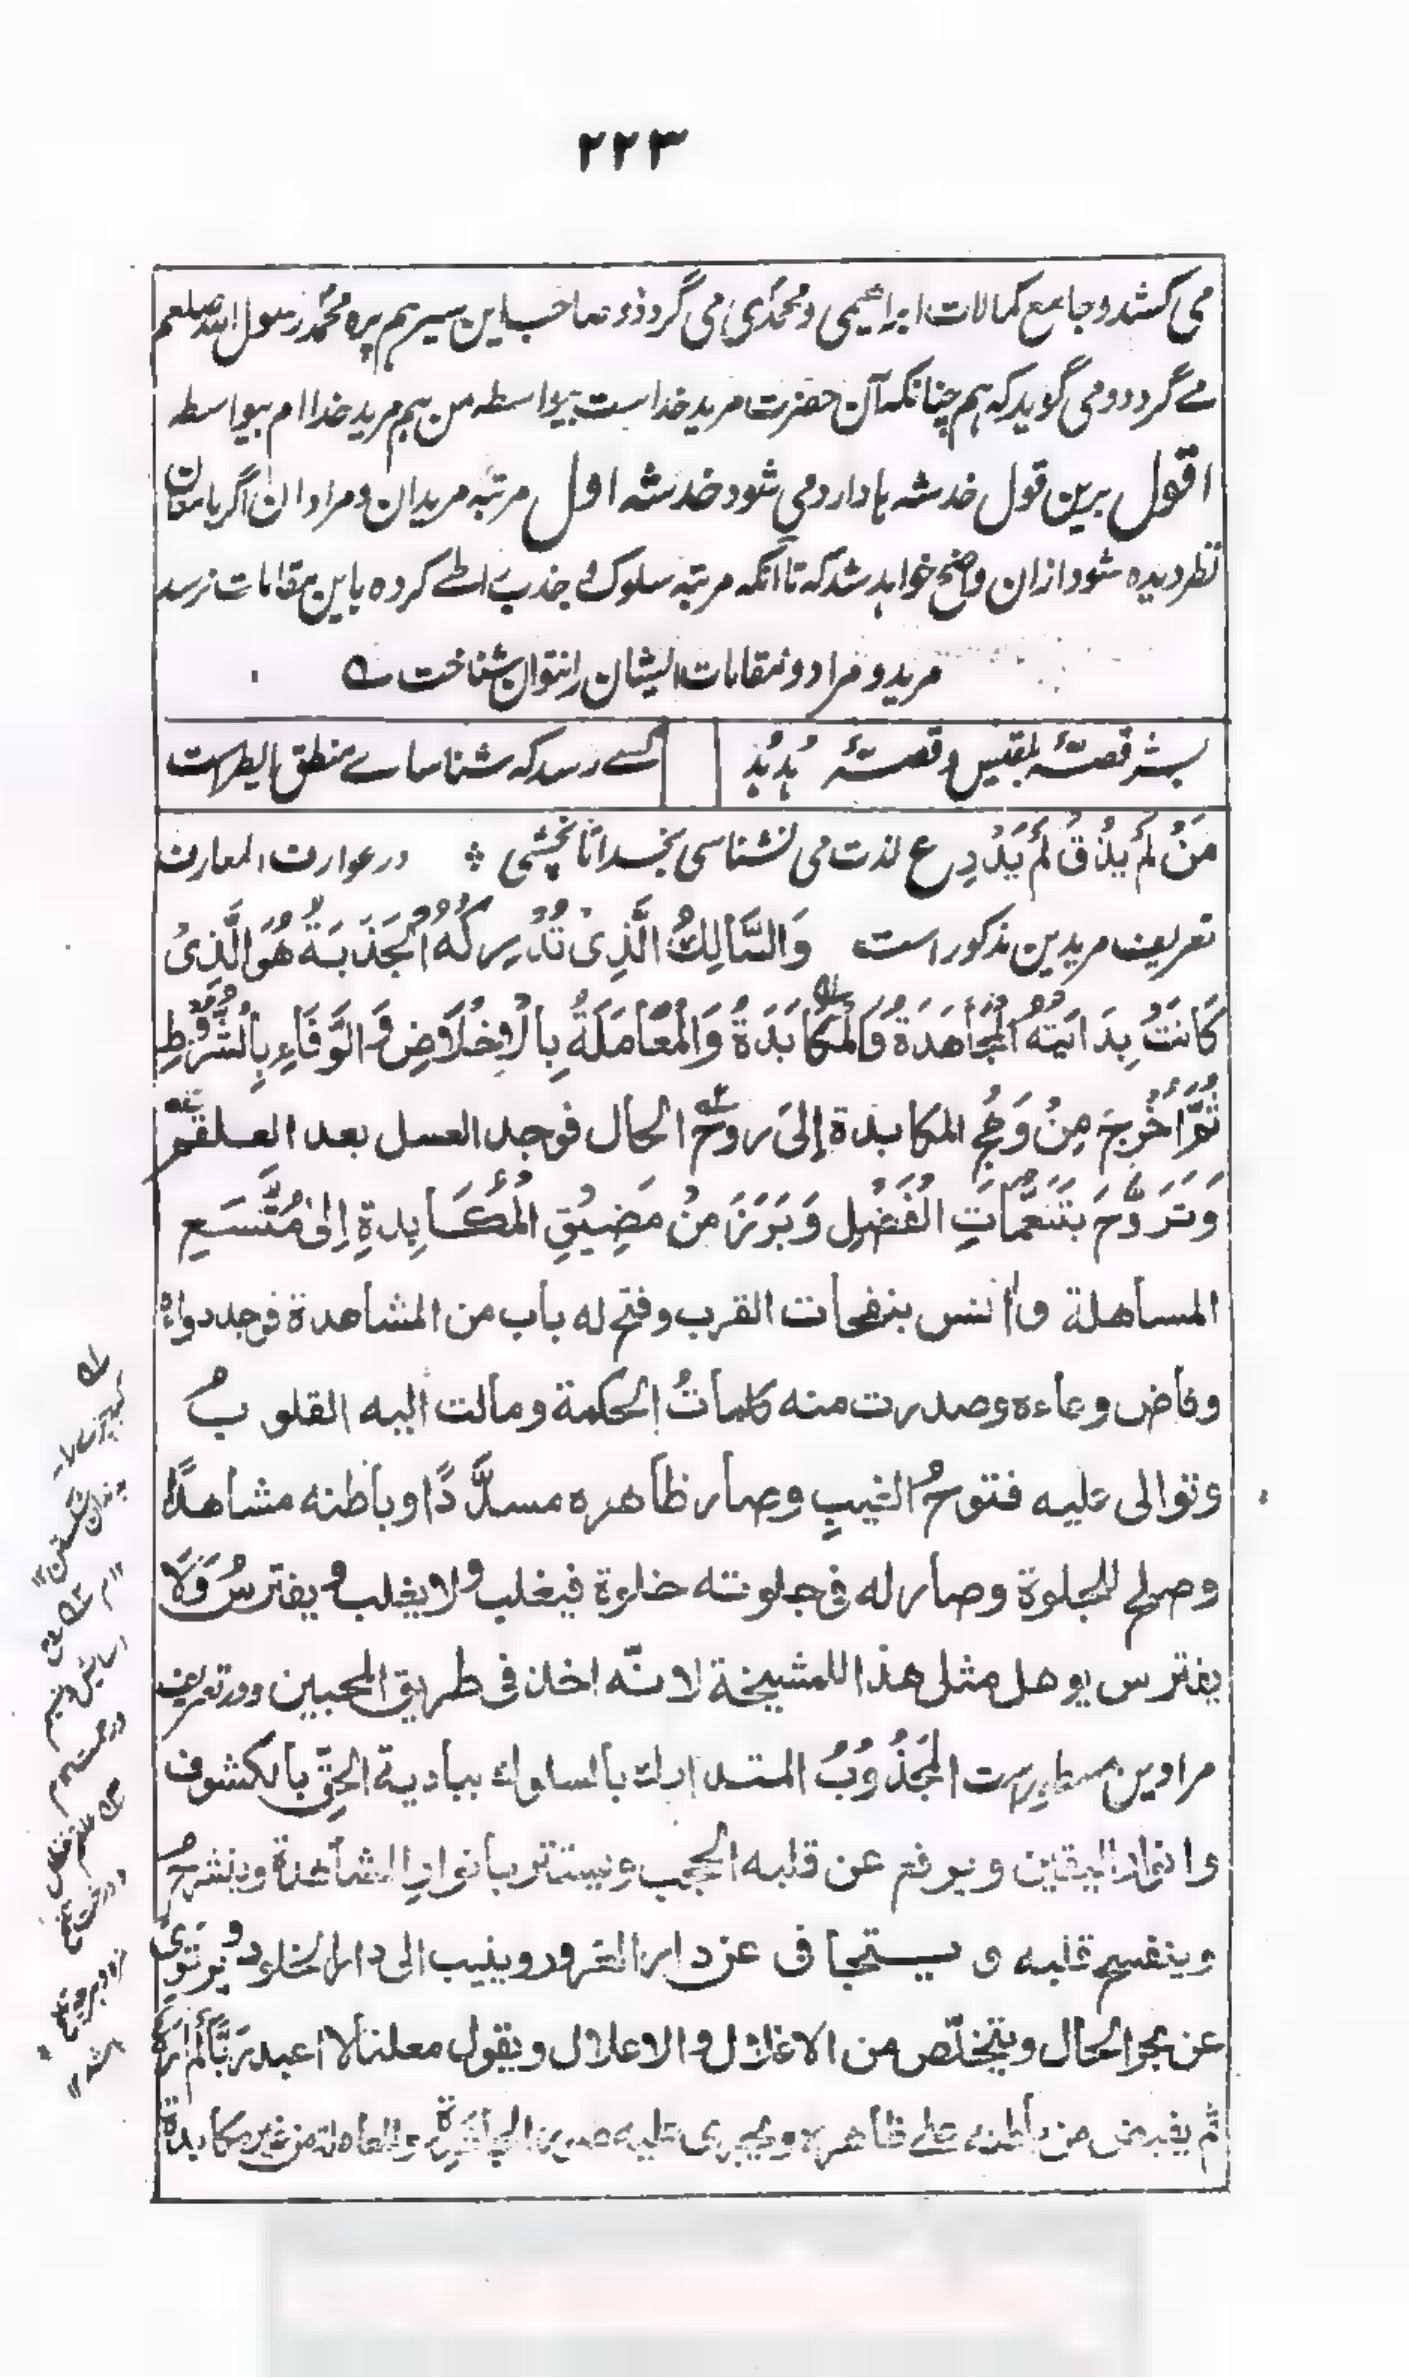 ۲۲۳
می کشد و جامع کمالات ابراهیمی و محمدی می گردد و صاحب این سیر هم پره محمد رسول الله صلعم
مے گردد و می گوید که هم چنانکه آن حضرت مرید خداست بیواسطه من هم مرید خدا ام بیواسطه
اقول برین قول خدشه ها دارد می شود خدشه اول مرتبه مریدان و مرادان اگر بامعان
نظر دیده شود ازان واضح خواهد شد که تا آنکه مرتبه سلوک و جذب را طے کرده باین مقامات نرسد
مرید و مراد و مقامات ایشان را نتوان شناخت ؎
بشر قصّهٔ بلقیس و قصّهٔ هُدهُد
کسے رسد که شناسائے منطق الطیرست
مَنْ لَمْ یَذُقْ لَمْ یَدْرِ ع لذت می نشناسی بخدا تا نچشی ؞ در عوارف المعارف
تعریف مریدین مذکور است وَالسَّالِكُ الَّذِیْ تُدْرِكُهُ الْجَذَبَةُ هُوَ الَّذِیْ
كَانَتْ بِدَایَتُهُ الْمُجَاهَدَةُ وَالْمُكَابَدَةُ وَالْمُعَامَلَةُ بِالْاِخْلَاصِ وَالْوَفَاءِ بِالشُّرُوْطِ
ثُمَّ اُخْرِجَ مِنْ وَهْجِ المكابدة إلىٰ رَوْحِ الحال فوجد العسل بعد العلقم
وَتَرَوَّحَ بِنَسَمَاتِ الْفَضْلِ وَبَرَزَ مِنْ مَضِیْقِ الْمُكَابِدةِ اِلىٰ مُتَّسَعِ
المساهلة واٰنس بنفحات القرب وفتح له باب من المشاهدة فوجد دواءهٗ
وفاض وعاءه وصدرت منه كلماتُ الحكمة ومالت الیه القلوبُ
وتوالى علیه فتوحُ الغیبِ وصار ظاهره مسدَّدًا وباطنه مشاهدًا
وصلح للجلوة وصار له فی جلوته خلوة فیغلب ولا یغلب ویفترسُ وَلَا
یفترس یوهل مثل هذا للمشیخة لانّه اخذ فی طریق المحبین ودر تعریف
مرادین مسطورست الْمَجْذُوْبُ المتدارك بالسلوك ببادیة الحقّ بالكشوف
وانوار الیقین ویرفع عن قلبه الحجب ویستتر بانوارِ المشاهدة وینشرحُ
وینفسح قلبه ویستجافی عن دار الغرور وینیب الى دار الخلود ویرتوی
عن بحر الحال ویتخلّص من الاغلال والاعلال ویقول معلنا لا اعبد رَبًّا لَمْ اَرَهٗ
ثم یفیض من باطنه علے ظاهره ویجری علیه صورة المجاهَدَةِ والمعاملة من غیر مكابدة